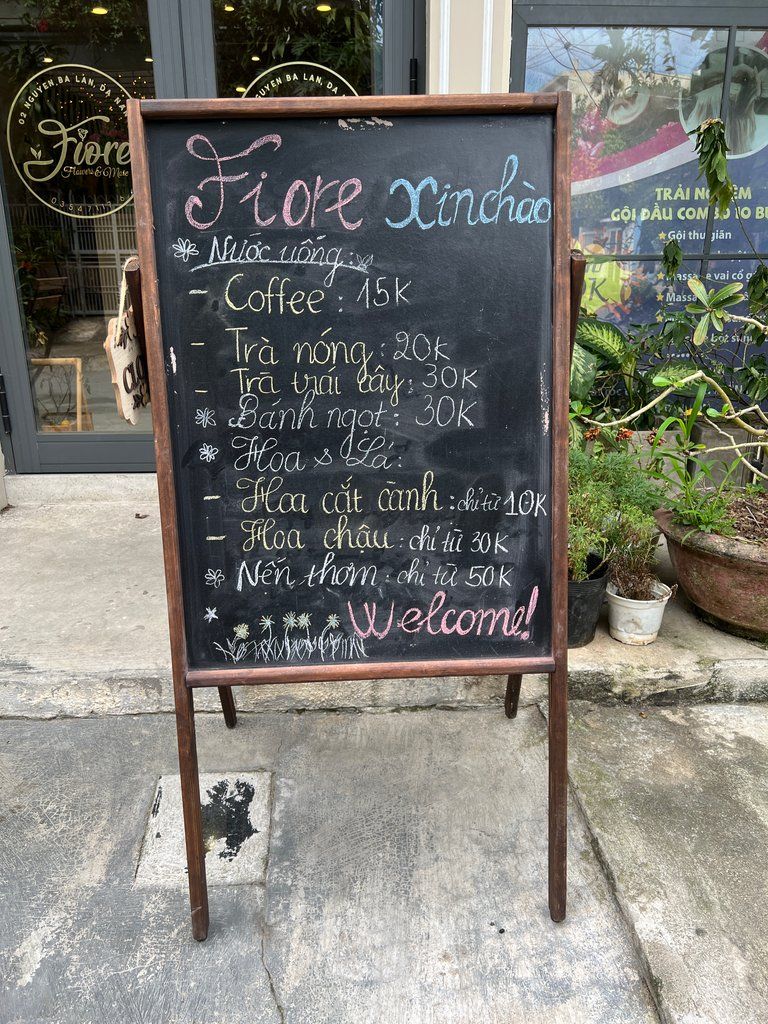 02 NGUYEN BA LAN, DA NA
Fiore
Flowers & More
NGUYEN BA LAN, DA
Fiore Xin chào
Nước uống:
- Coffee: 15K
- Trà nóng: 20K
- Trà trái cây: 30K
Bánh ngọt: 30K
Hoa & Lá:
- Hoa cắt cành: chỉ từ 10K
- Hoa chậu: chỉ từ 30K
Nến thơm: chỉ từ 50K
Welcome!
TRẢI NGHIỆM
GỘI ĐẦU COMBO 10 BƯ
Gội thư giãn
Massage vai cổ g
Massa